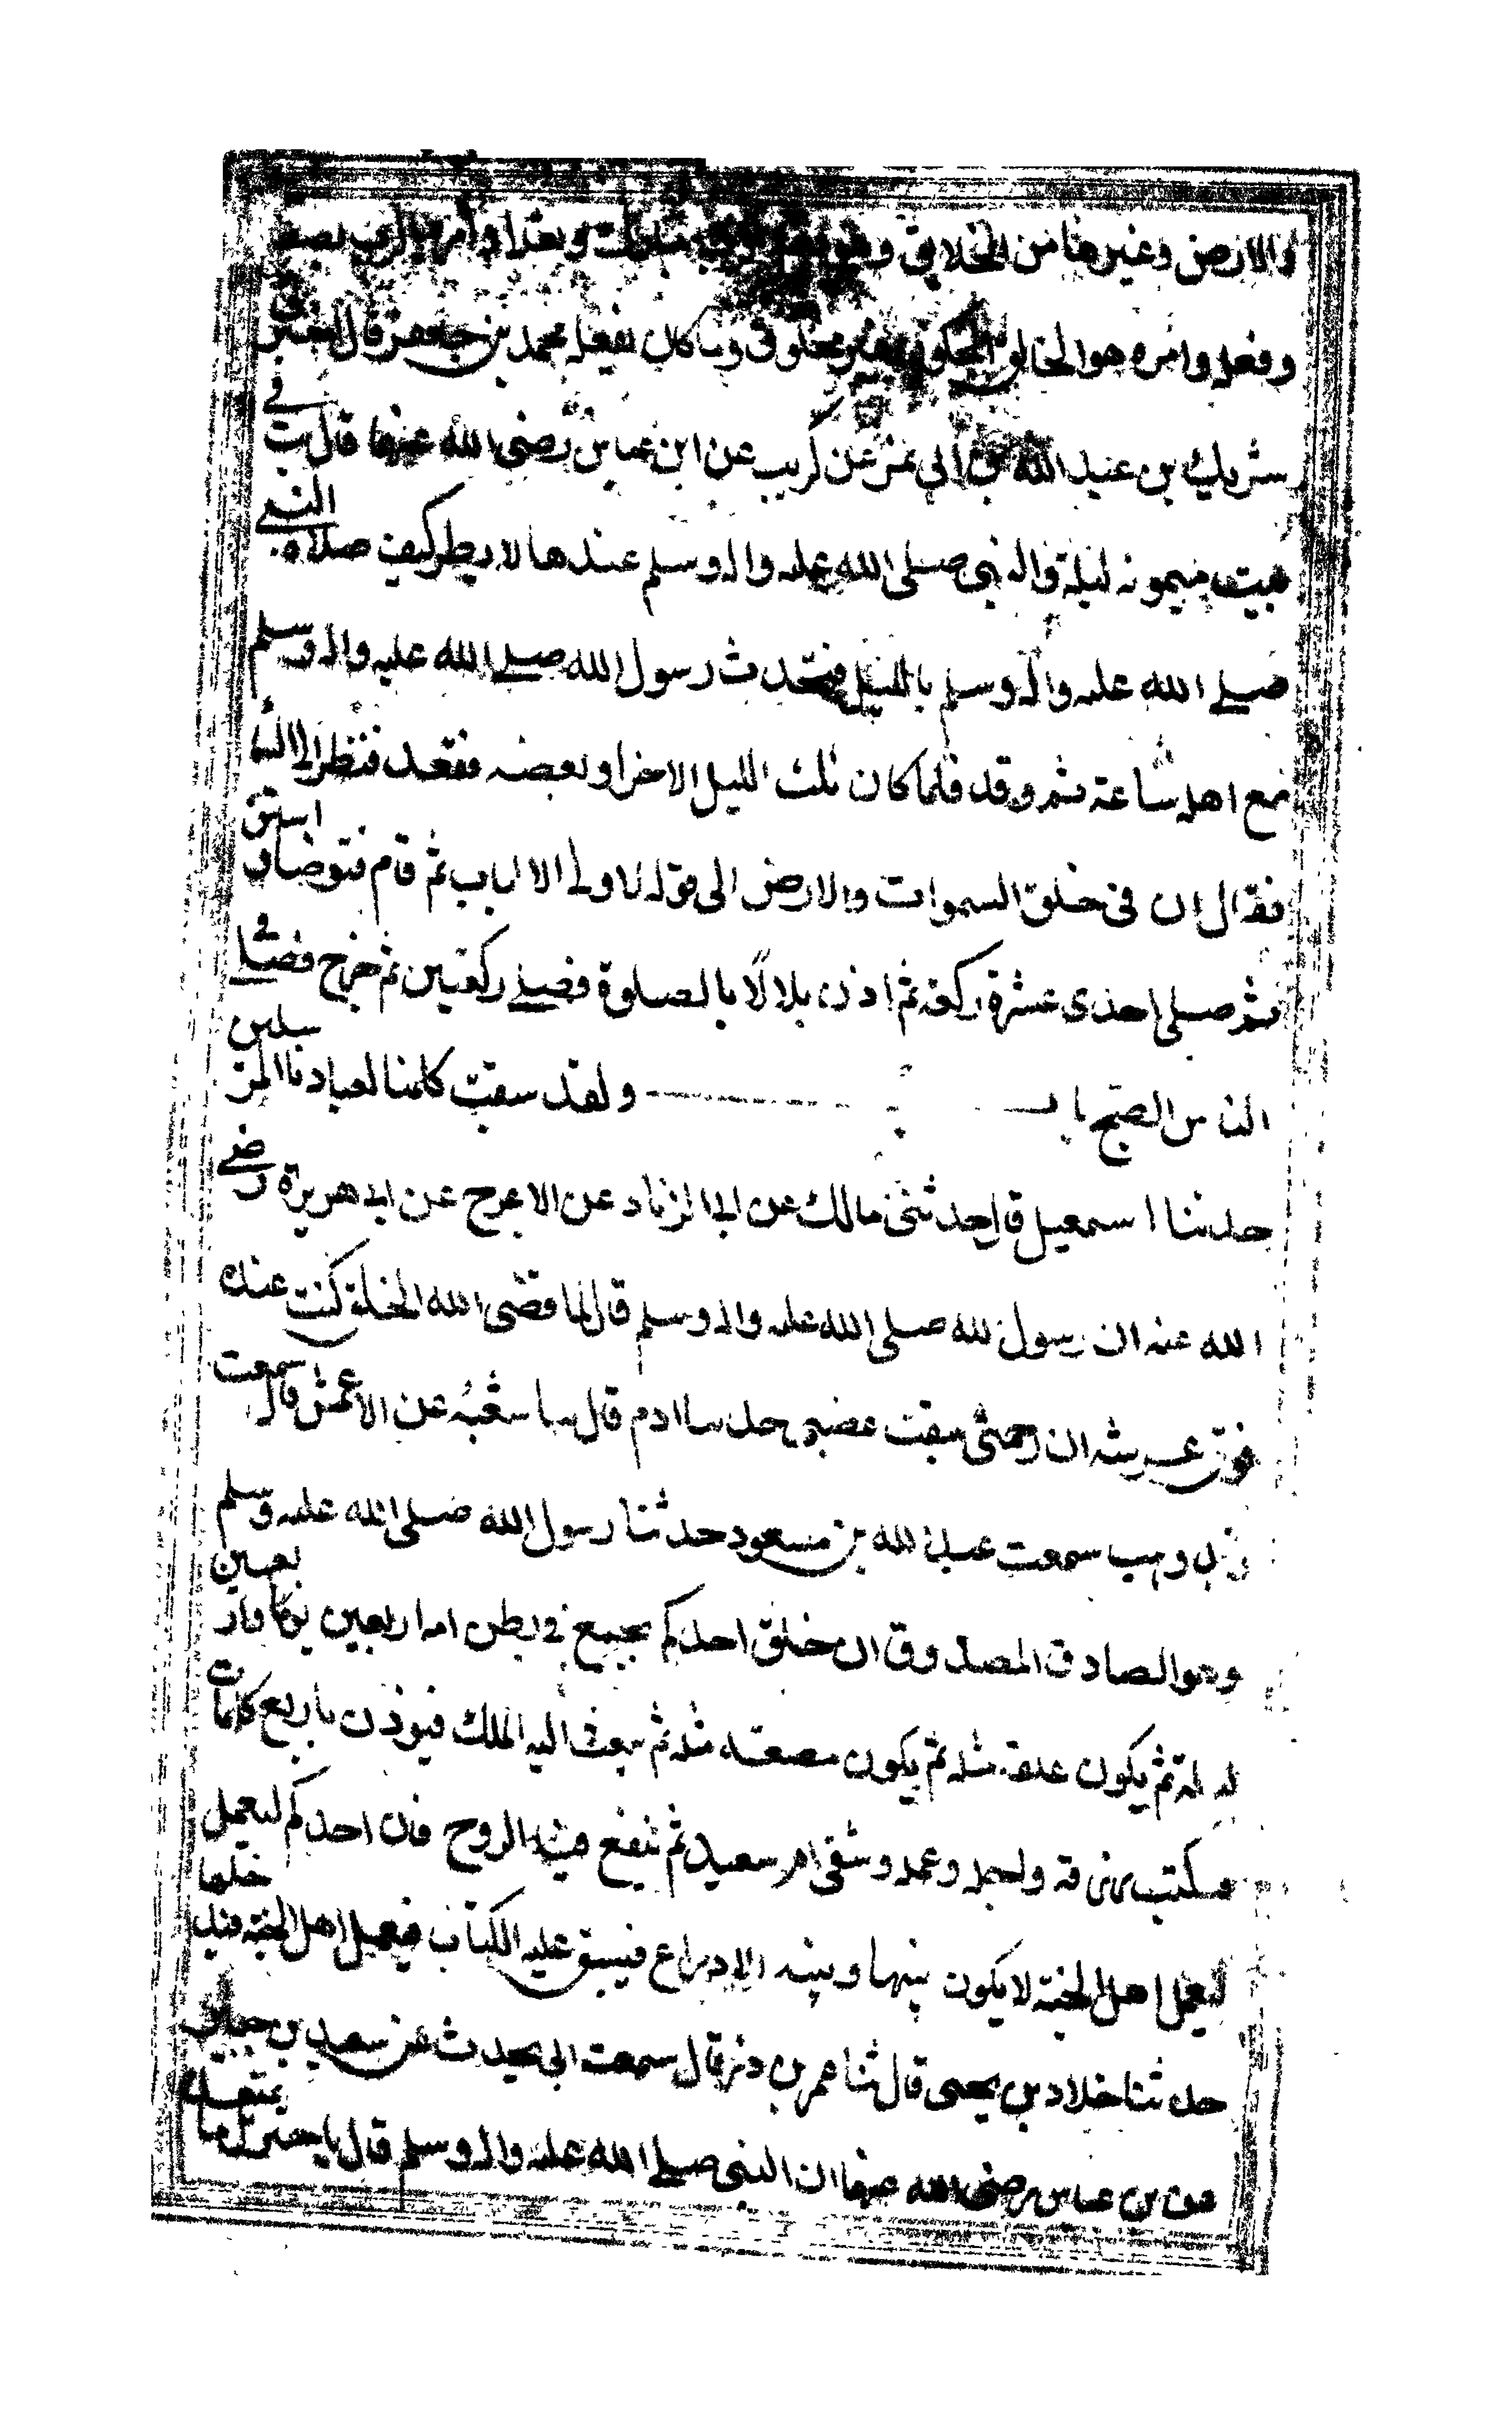 والارض وغيرها من الخلايق وهو فعل الرب تبارك وتعالى وامره فالرب بصفاته
وفعله وامره هو الخالق المكون غير مخلوق وما كان بفعله محمد بن جعفر قال اخبرني
شريك بن عبد الله بن ابي نمر عن كريب عن ابن عباس رضي الله عنهما قال بت في
بيت ميمونه ليلة والنبي صلى الله عليه واله وسلم عندها لا نظر كيف صلاة النبي
صلى الله عليه واله وسلم بالليل فتحدث رسول الله صلى الله عليه واله وسلم
مع اهله ساعة ثم رقد فلما كان ثلث الليل الاخر او بعضه فقعد فنظر الى السماء
فقال ان في خلق السموات والارض الى قوله لاولى الالباب ثم قام فتوضا و استن
ثم صلى احدى عشرة ركعة ثم اذن بلالا بالصلوة فصلى ركعتين ثم خرج فصلى
الناس الصبح باب ولقد سبقت كلمتنا لعبادنا المرسلين
حدثنا اسمعيل قال حدثنى مالك عن ابى الزناد عن الاعرج عن ابى هريرة رضى
الله عنه ان رسول الله صلى الله عليه واله وسلم قال لما قضى الله الخلق كتب عنده
فوق عرشه ان رحمتى سبقت غضبى حدثنا ادم قال ثنا شعبه عن الاعمش قال سمعت
زيد وهب سمعت عبد الله بن مسعود حدثنا رسول الله صلى الله عليه وسلم
وهو الصادق المصدوق ان خلق احدكم يجمع فى بطن امه اربعين يوما واربعين
ليلة ثم يكون علقة مثله ثم يكون مضغة مثله ثم يبعث اليه الملك فيوذن باربع كلمات
فيكتب رزقه واجله وعمله وشقى ام سعيد ثم ينفخ فيه الروح فان احدكم ليعمل
ليعمل اهل الجنة لا يكون بينها وبينه الا ذراع فيسبق عليه الكتاب فيعمل اهل الجنة فيدخلها
حدثنا خلاد بن يحيى قال ثنا عمر بن ذر قال سمعت ابى يحدث عن سعيد بن جبير
عن بن عباس رضى الله عنهما ان النبى صلى الله عليه واله وسلم قال يا جبريل ما يمنعك